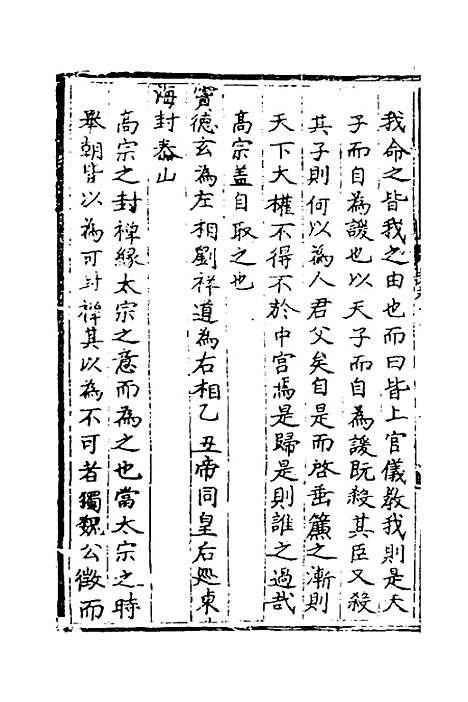 我命之皆我之由也而曰皆上官儀教我則是天
子而自為諼也以天子而自為諼既殺其臣又殺
其子則何以為人君父矣自是而啓垂簾之漸則
天下大權不得不於中宮焉是歸是則誰之過哉
高宗盖自取之也
竇德玄為左相劉祥道為右相乙丑帝同皇后処東
海封泰山
高宗之封禅縁太宗之意而為之也當太宗之時
舉朝皆以為可封禅其以為不可者獨魏公徵而